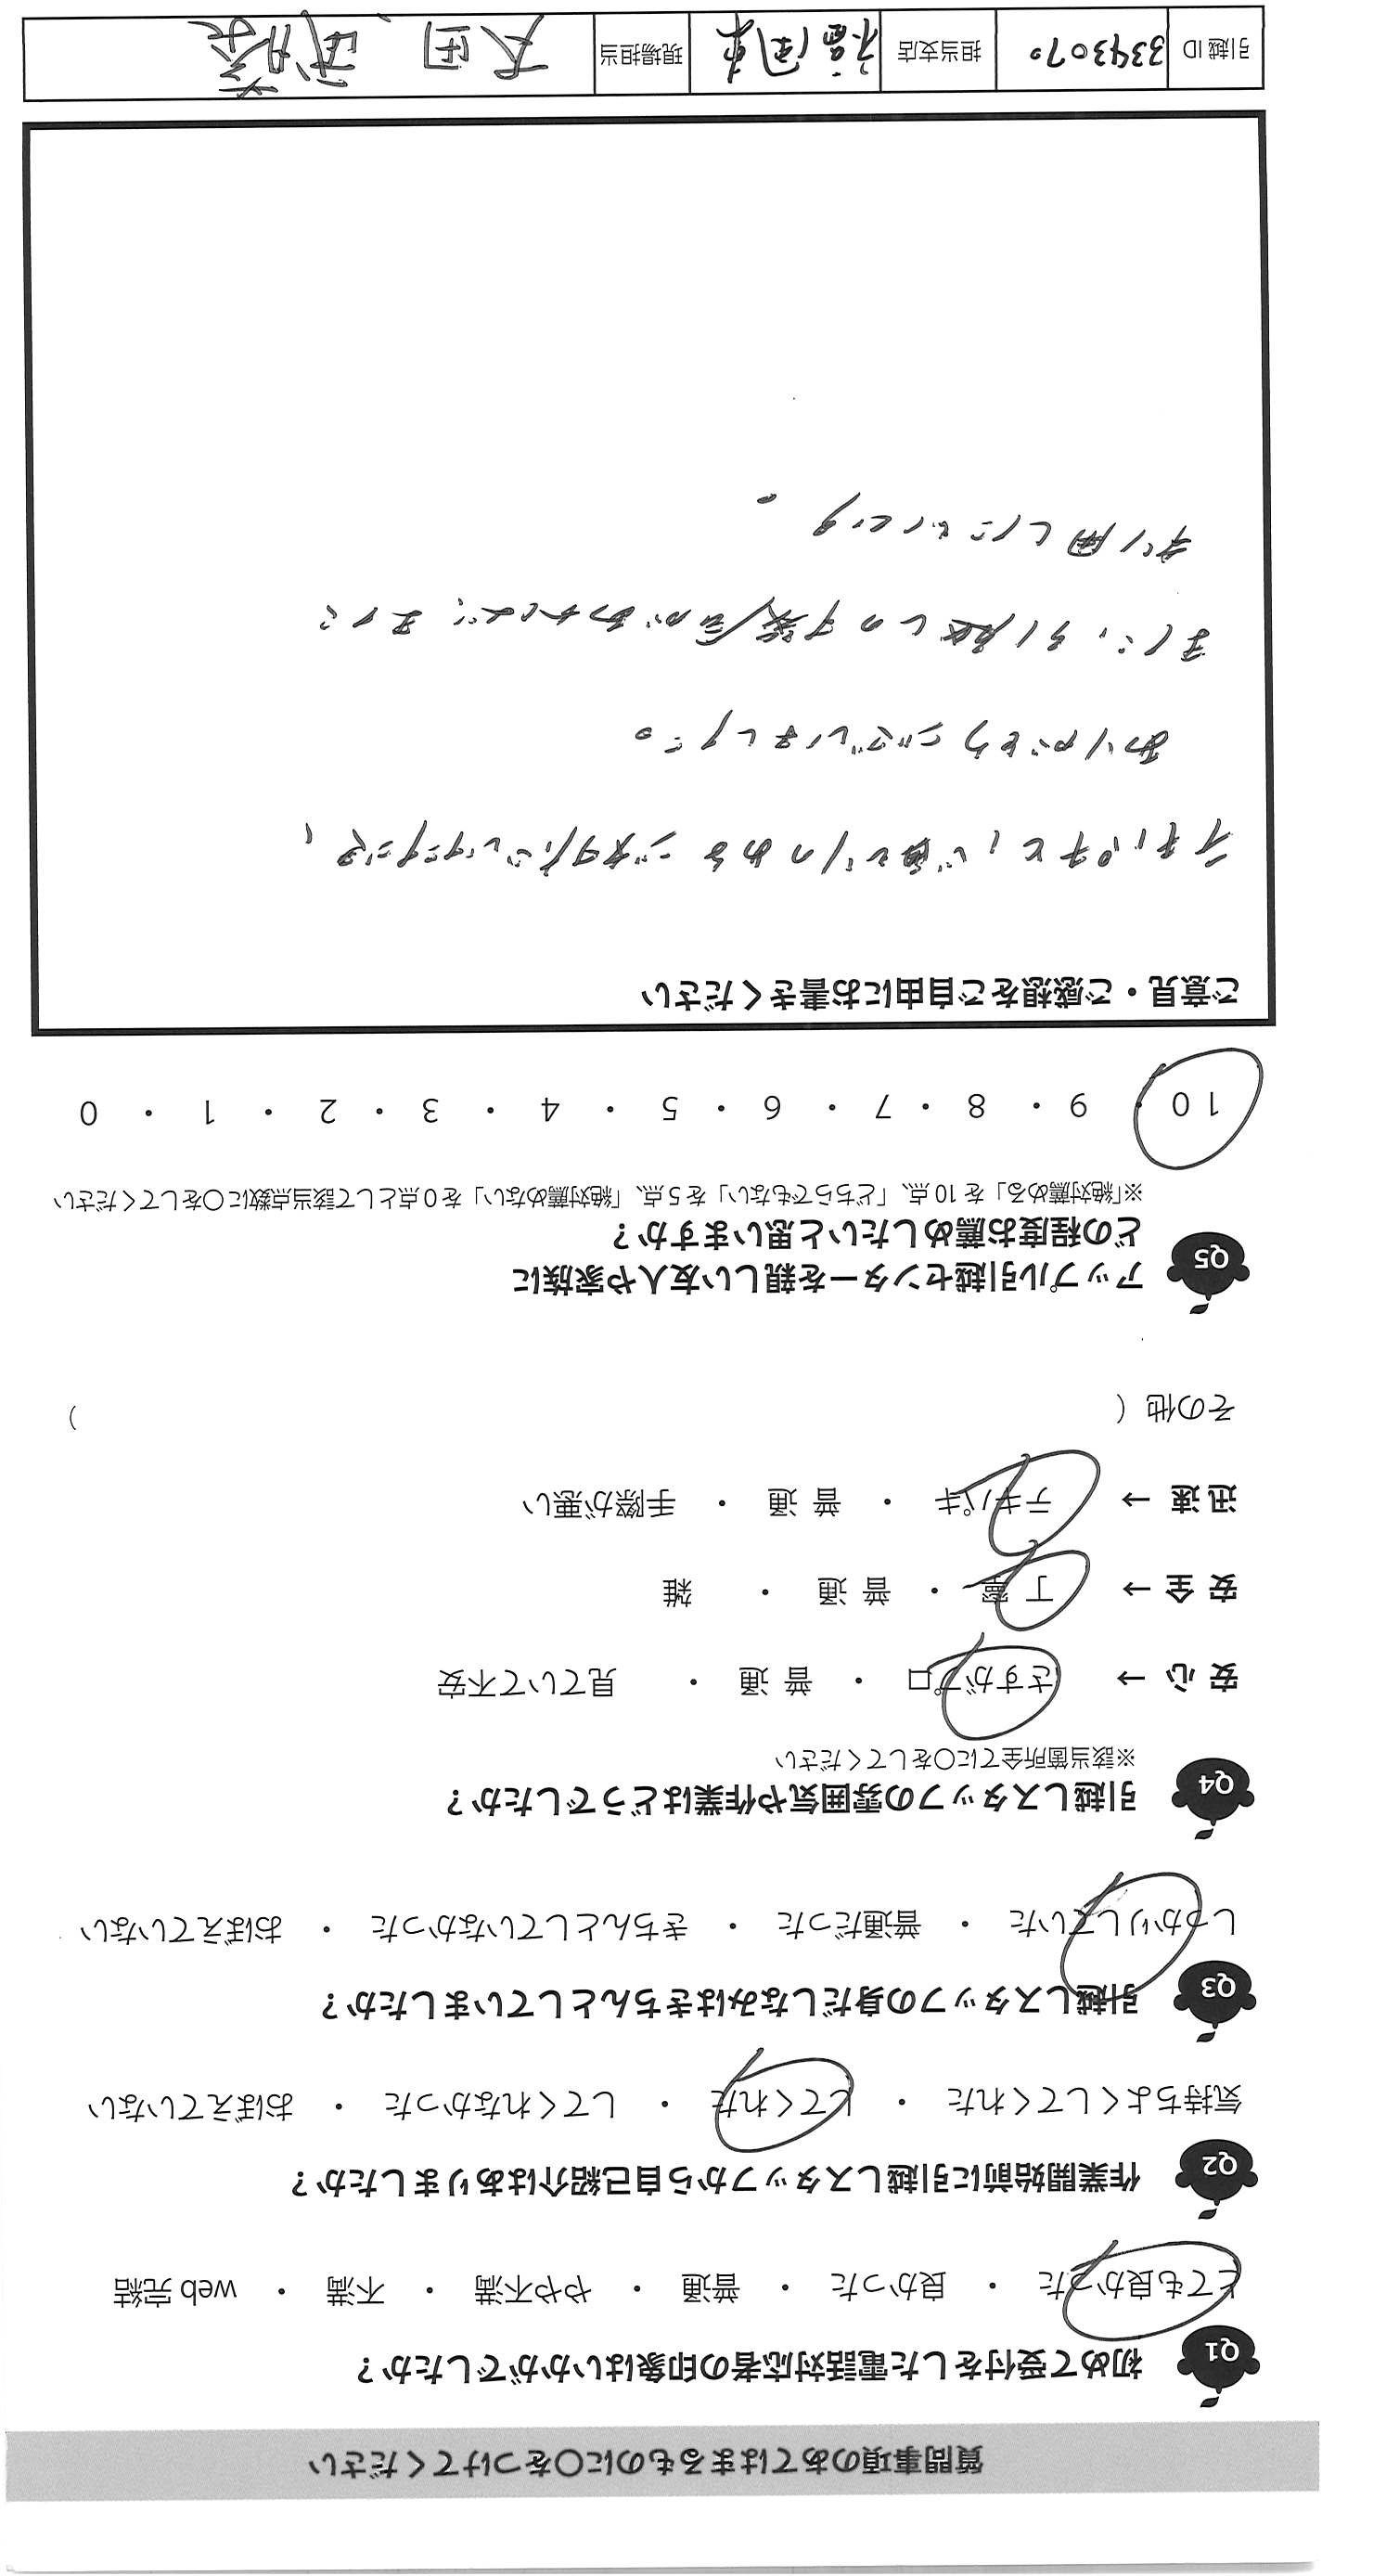 質問事項のあてはまるものに〇をつけてください
Q1 初めて受付をした電話対応者の印象はいかがでしたか?
とても良かった ・ 良かった ・ 普通 ・ やや不満 ・ 不満 ・ web 完結
Q2 作業開始前に引越しスタッフから自己紹介はありましたか?
気持ちよくしてくれた ・ してくれた ・ してくれなかった ・ おぼえていない
Q3 引越しスタッフの身だしなみはきちんとしていましたか?
しっかりしていた ・ 普通だった ・ きちんとしていなかった ・ おぼえていない
Q4 引越しスタッフの雰囲気や作業はどうでしたか?
※該当箇所全てに〇をしてください
安心 → さすがプロ ・ 普通 ・ 見ていて不安
安全 → 丁寧 ・ 普通 ・ 雑
迅速 → テキパキ ・ 普通 ・ 手際が悪い
その他 ( )
Q5 アップル引越センターを親しい友人や家族に
どの程度お薦めしたいと思いますか?
※「絶対薦める」を 10 点、「どちらでもない」を 5 点、「絶対薦めない」を 0 点として該当点数に〇をしてください
10 ・ 9 ・ 8 ・ 7 ・ 6 ・ 5 ・ 4 ・ 3 ・ 2 ・ 1 ・ 0
ご意見・ご感想をご自由にお書きください
テキパキと、のあるご対応いただき、
ありがとうございました。
また、引越しの機会があれば、また
利用したいです。
引越 ID 3343070 担当支店 福岡東 現場担当